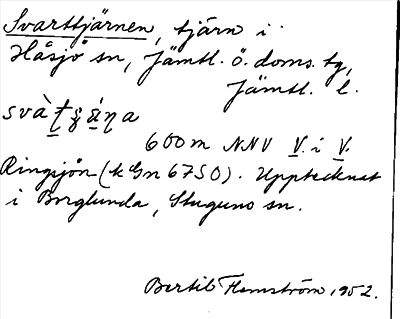 Svarttjärnen, tjärn i
Håsjö sn, Jämtl. ö. doms. tg,
Jämtl. l.
600 m NNV V. i V.
Ringsjön (k Gn 6750). Upptecknat
i Borglunda, Stuguns sn.
Bertil Flemström, 1952.